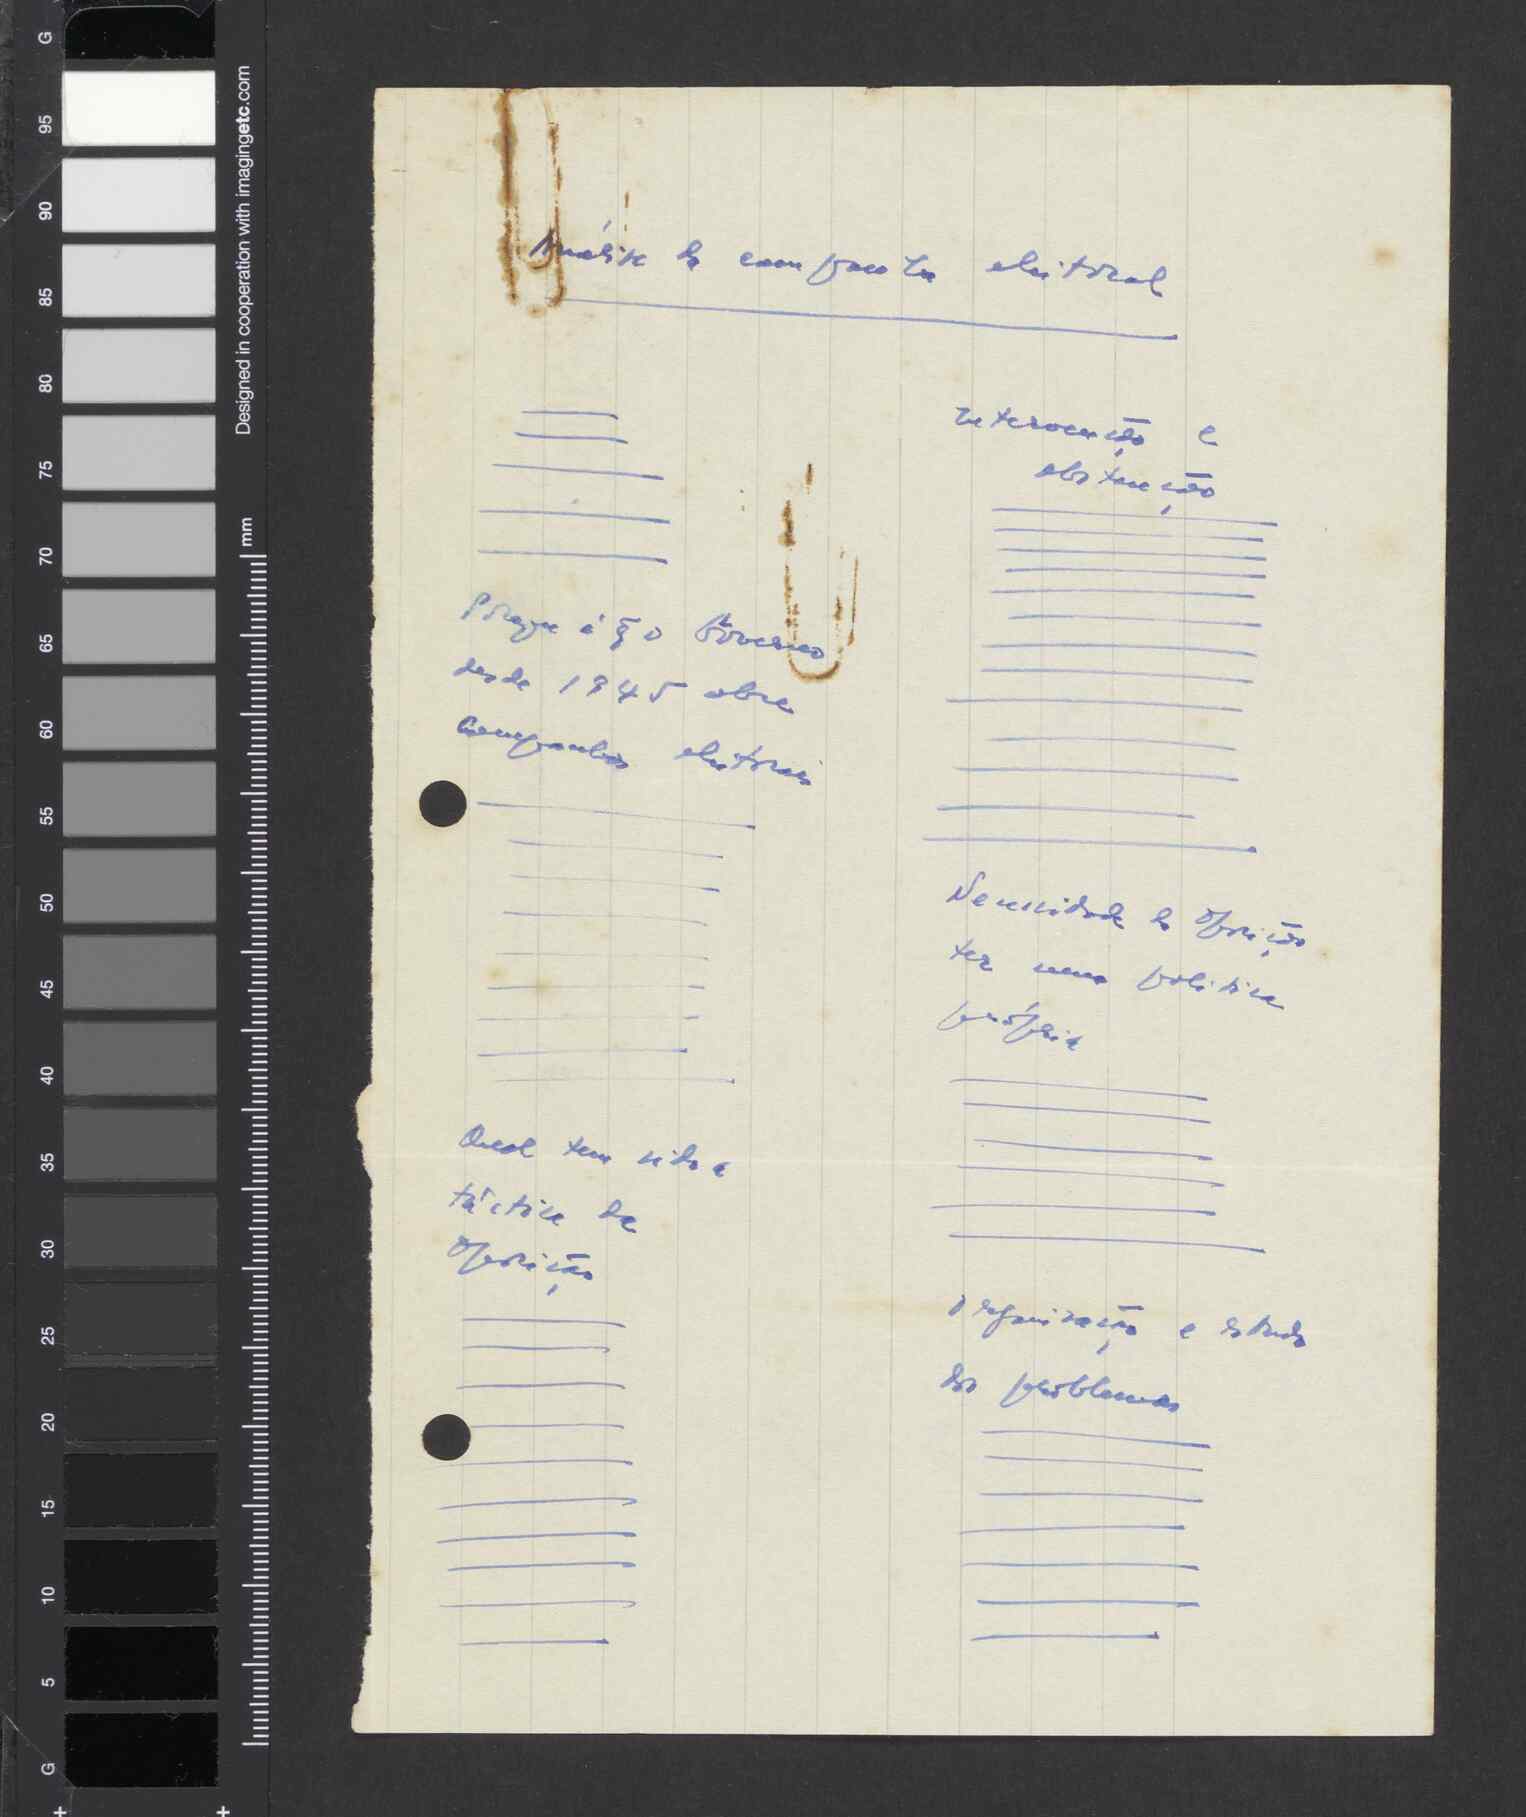 Análise da campanha eleitoral
Porque é q̃ o Governo
desde 1945 abre
campanhas eleitorais
Qual tem sido a
táctica da
oposição
Intervenção e
abstenção
Necessidade da oposição
ter uma politica
própria
Organização e estudo
dos problemas
G
95
90
85
80
75
70
65
60
55
50
45
40
35
30
25
20
15
10
5
G
Designed in cooperation with imagingetc.com
mm